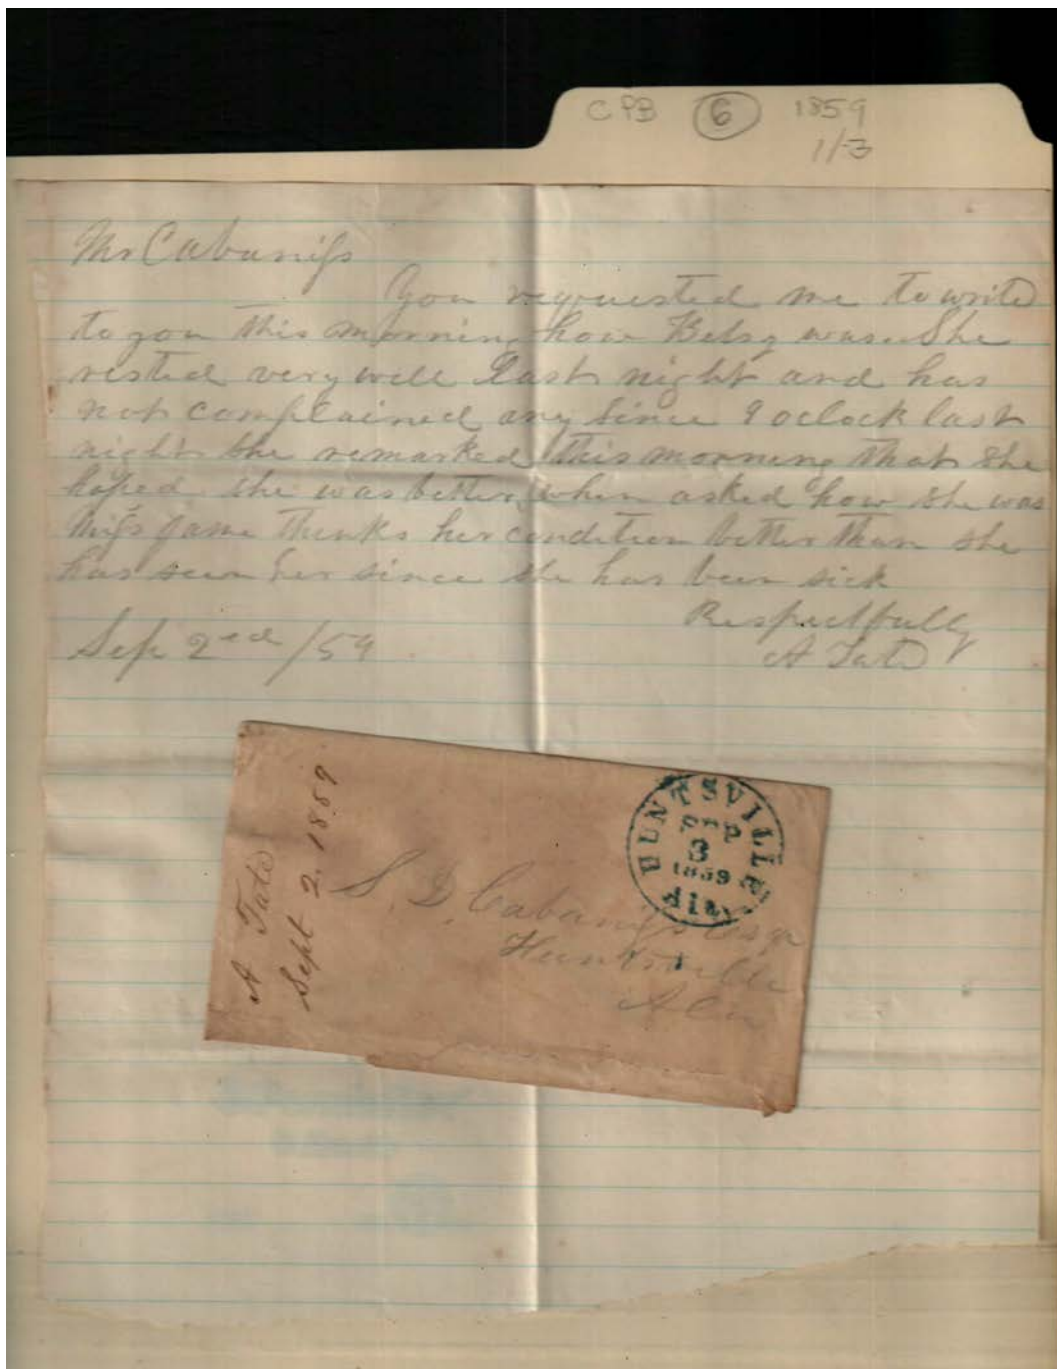 CPB 6 1859
1/3
Mr Cabaniss
You requested me to write
to you this morning how Betsy was. She
rested very well last night and has
not complained any since 9 oclock last
night she remarked this morning that she
hoped she was better, when asked how she was
Miss Jane thinks her condition better than she
has seen her since she has been sick
Respectfully
Sep 2ed /59 A Tate
A Tate
Sept 2. 1859
HUNTSVILLE
SEP
3
1859
Ala.
S. D. Cabaniss Esqr
Huntsville
Ala